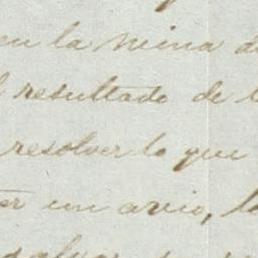 en la mina d
resultado de l
resolver lo que
er un avio, lo